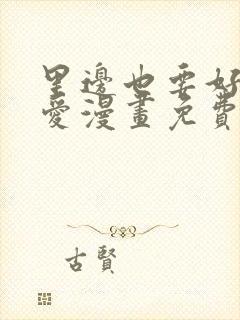 里邊也要好
愛漫畫免費
古賢